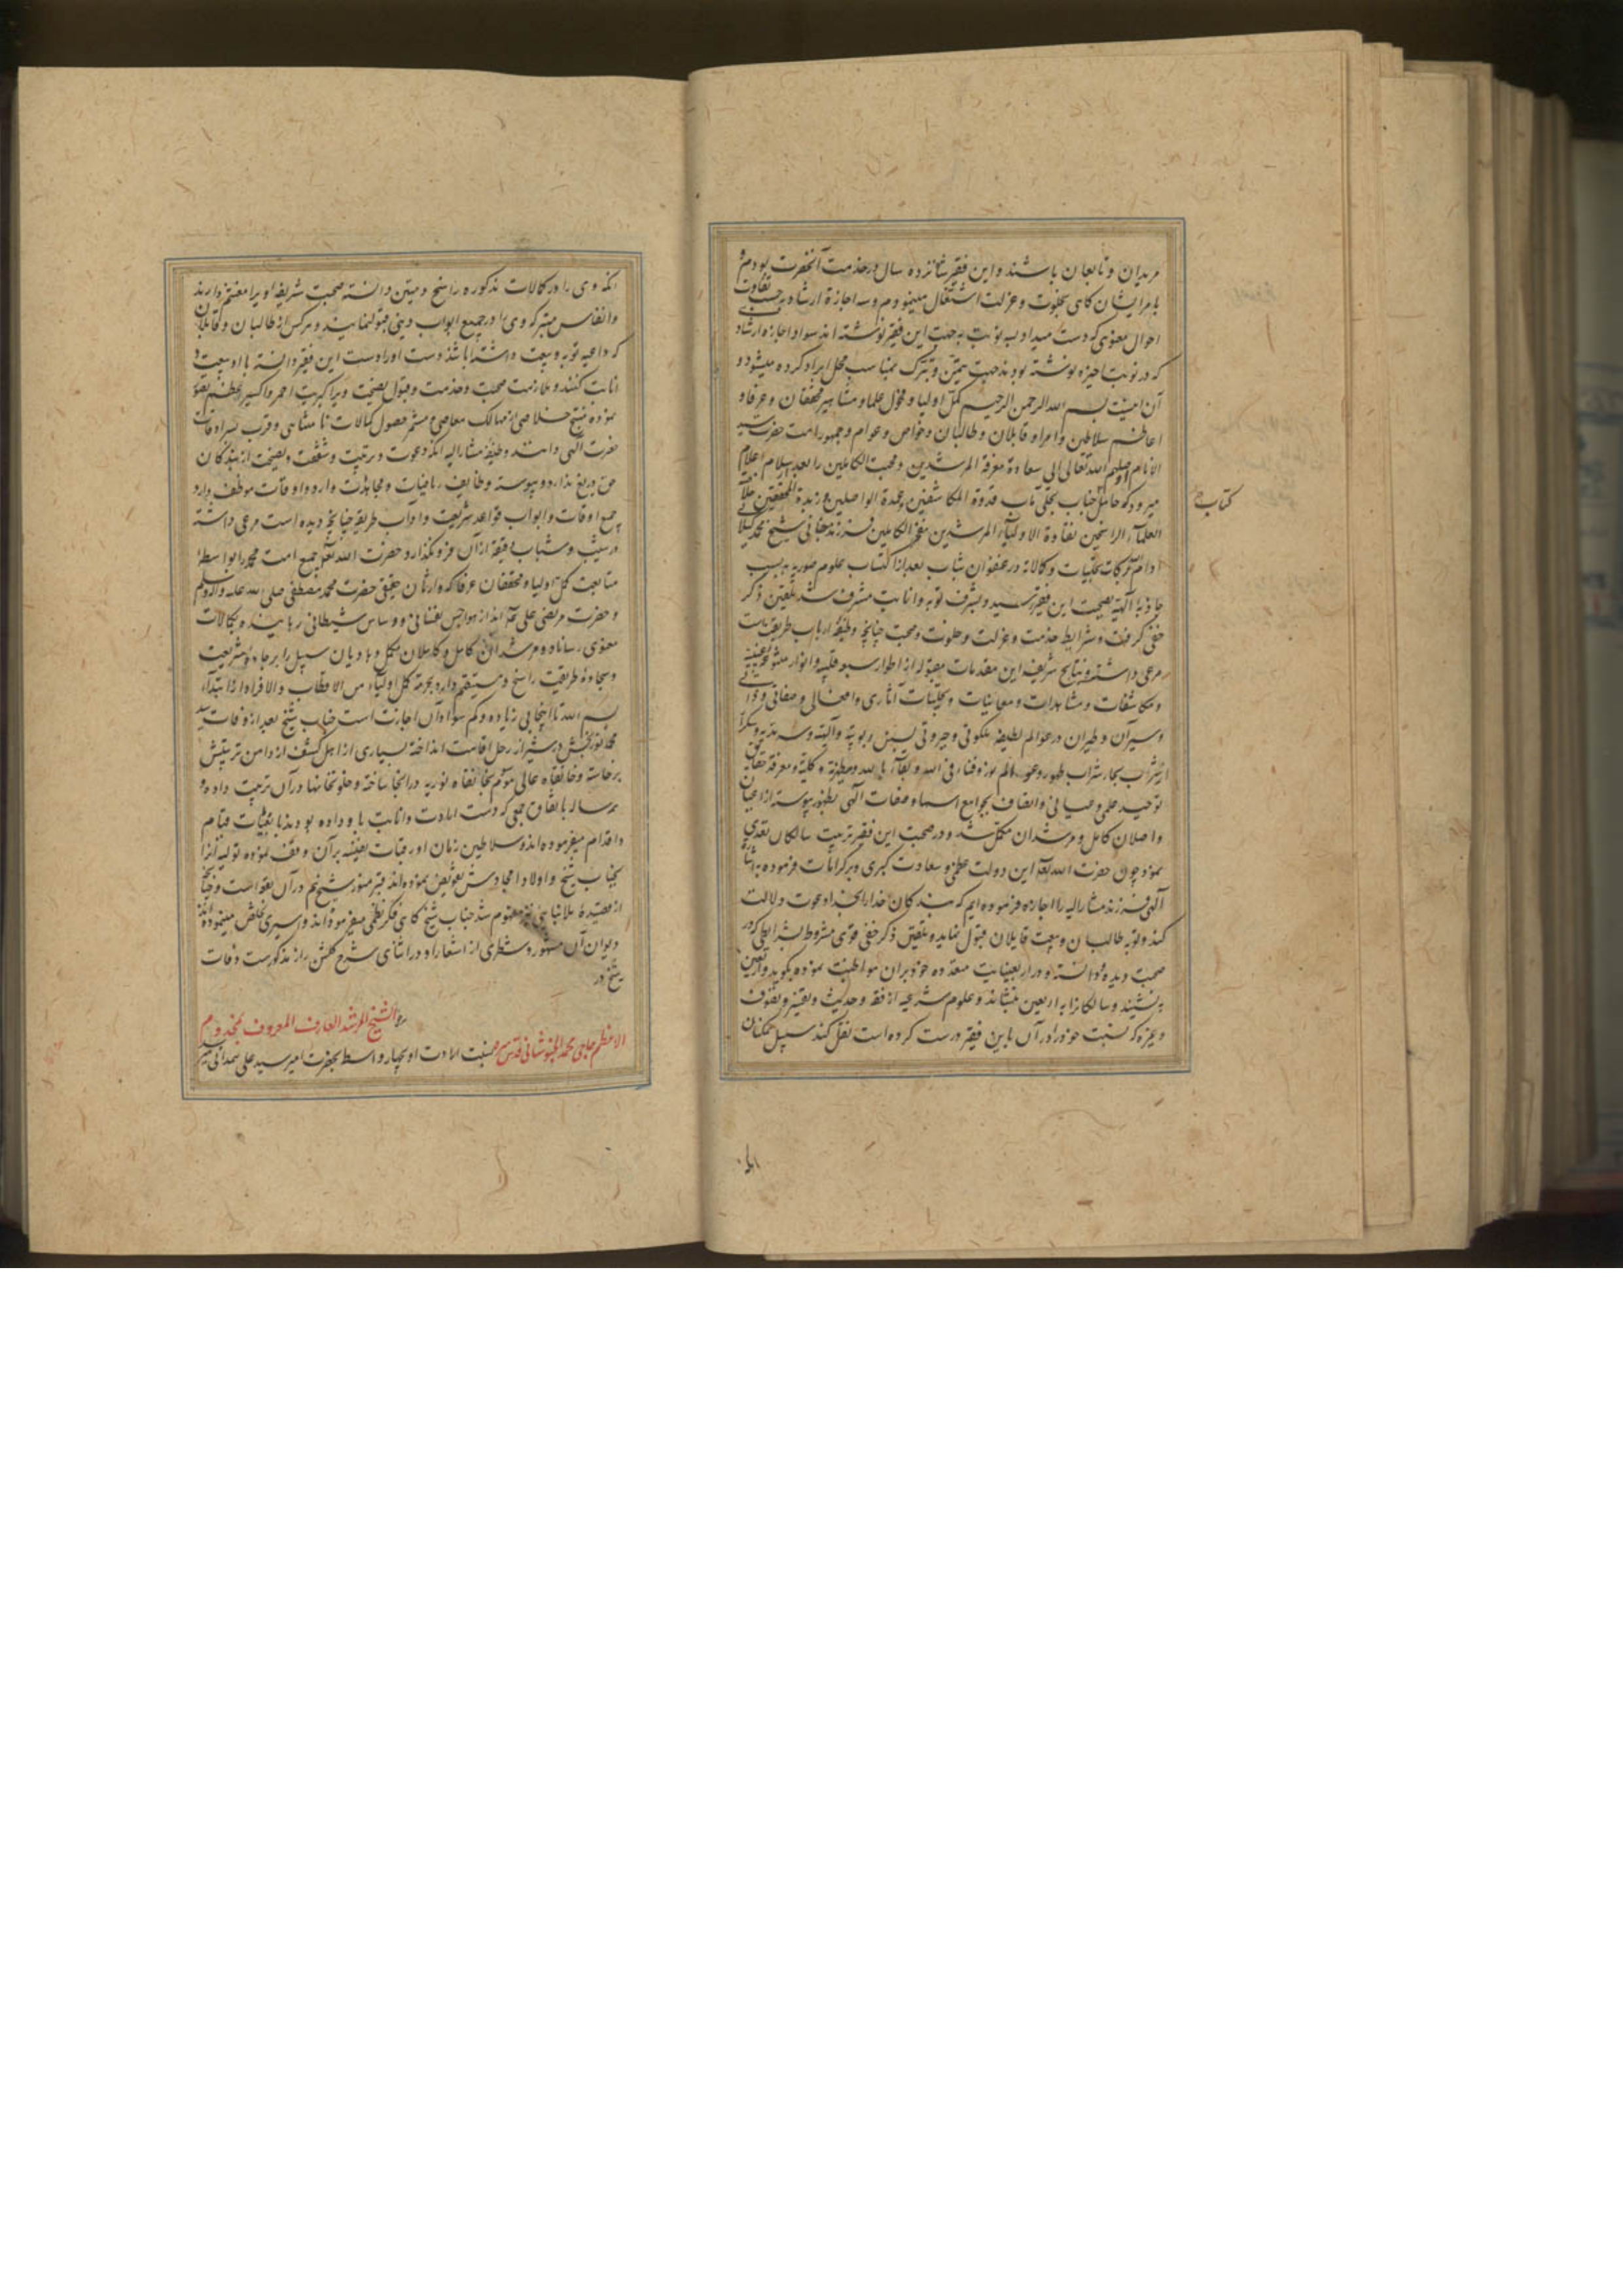 مریدان و تابعان باشند و این فقیر شانزده سال در خدمت آنحضرت بودم و
بامر ایشان گاهی بخلوت و عزلت اشتغال مینمودم و سه اجازة ارشاد بر حسب تفاوت
احوال معنوی که دست میداد سه نوبت بجهت این فقیر نوشته اند سواد اجازه ارشاد
که در نوبت اخیره نوشته بودند جهت تیمن و تبرک بمناسب محل ایراد کرده میشود و
آن اینست بسم الله الرحمن الرحیم کمل اولیا و فحول علما و مشاهیر محققان و عرفا و
اعاظم سلاطین و امرا و قابلان و طالبان و خواص و عوام و جمهور امت حضرت سید
الانام اوصلهم الله تعالی الی سعادة معرفة المرشدین و محبت الکاملین را بعد از سلام اعلام
میرود که حامل کتاب جناب تجلی مآب قدوة المکاشفین و عمدة الواصلین و زبدة المحققین
العلماء الراسخین نقاوة الاولیاء المرشدین مفخر الکاملین فرزند جانی شیخ محمد گیلانی
ادام الله برکات تجلیات و کمالاته در عنفوان شباب بعد از اکتساب علوم صوریه بسبب
جاذبهٔ الهیه بصحبت این فقیر رسید و بشرف توبه و انابت مشرف شد تلقین ذکر
خفی گرفت و شرایط خدمت و عزلت و خلوت و صحبت چنانچه وظیفهٔ ارباب طریقت است
مرعی داشته و نتایج شریفه این مقدمات مقبوله از اطوار سبعه قلبیه و انوار متنوعه غیبیه
و مکاشفات و مشاهدات و معاینات و تجلیات آثاری و افعالی و صفاتی و ذاتی
و سیران و طیران در عوالم لطیفه ملکوتی و جبروتی
از شرب بحار شراب طهور و فناء فی الله و بقاء بالله و معرفة حقایق
توحید علمی و عیانی و اتصاف بجوامع اسما و صفات الهی بظهور پیوسته از اعیان
واصلان کامل و مرشدان مکمل شد و در صحبت این فقیر تربیت سالکان
نمود چون حضرت الله تعالی این دولت عظمی و سعادت کبری و
الهی فرزند مشارالیه را اجازه فرموده ایم که بندگان خدا را بخدا دعوت و دلالت
کند و توبه طالبان و بیعت قابلان قبول نماید و تلقین ذکر خفی قوی مشروط بشرایطی که در
صحبت دیده و دانسته و در اربعینیات متعدده خود بر آن مواظبت نموده بگوید و اربعین
بنشیند و سالکانرا به اربعین بنشاند و علوم شرعیه از فقه و حدیث و تفسیر و تصوف
و غیره که نسبت خود را در آن باین فقیر درست کرده است نقل کند سبیل همگنان
کتاب
آنکه وی را در کمالات مذکوره راسخ و متین دانسته صحبت شریف او را مغتنم دارند
و انفاس متبرکه وی را در جمیع ابواب دینی قبول نمایند و هر کس از طالبان و قابلان
که داعیه توبه و بیعت داشته باشد دست او را دست این فقیر دانسته با او بیعت و
انابت کنند و ملازمت صحبت و خدمت و قبول نصیحت ویرا کبریت احمر و اکسیر اعظم تصور
نموده منتج خلاصی از مهالک معاصی و مثمر حصول کمالات نامتناهی و قرب سرادقات
حضرت الهی دانند وظیفهٔ مشارالیه آنکه دعوت و تربیت و شفقت و نصیحت از بندگان
حق دریغ ندارد و پیوسته وظایف ریاضات و مجاهدات و اوراد و اوقات موظف دارد
جمیع اوقات و ابواب قواعد شریعت و آداب طریقه چنانچه دیده است مرعی داشته
در شیب و شباب دقیقهٔ از آن فرو نگذارد حضرت الله تعالی جمیع امت محمد را بواسطه
متابعت کمل اولیا و محققان عرفا که وارثان حقیقی حضرت محمد مصطفی صلی الله علیه و آله وسلم
و حضرت مرتضی علی اند از هواجس نفسانی و وساوس شیطانی رهانیده بکمالات
معنوی رساناد و مرشدان کامل و کاملان مکمل و هادیان سبیل را بر جادهٔ شریعت
و سجادهٔ طریقت راسخ و مستقیم دارد بحرمة کمل اولیاء من الاقطاب و الافراد از ابتداء
بسم الله تا اینجا بی زیاده و کم سواد آن اجازت است جناب شیخ بعد از وفات سید
محمد نوربخش در شیراز رحل اقامت انداخته بسیاری از اهل کشف از دامن تربیتش
برخاسته و خانقاه عالی موسوم بخانقاه نوریه در آنجا ساخته و خلوتخانها در آن ترتیب داده و
هر ساله باتفاق جمعی که دست ارادت و انابت باو داده بودند باربعینات قیام
و اقدام میفرموده اند و سلاطین زمان اورقبات نفیسه بر آن وقف نموده تولیه آنرا
بجناب شیخ و اولاد امجادش تفویض نموده اند قبر منور شیخ هم در آن بقعه است و چنانچه
از قصیدهٔ ملا بنائی نیز مفهوم شد جناب شیخ گاهی فکر نظمی میفرموده اند و اسیری تخلص مینموده اند
دیوان آن مشهور و شطری از اشعار او در اثنای شرح گلشن راز مذکورست وفات
شیخ در
الشیخ المرشد العارف المعروف بمخدوم
الاعظم حاجی محمد الخبوشانی قدس سره نسبت ارادت او بچهار واسطه بحضرت امیر سید علی همدانی میرسد